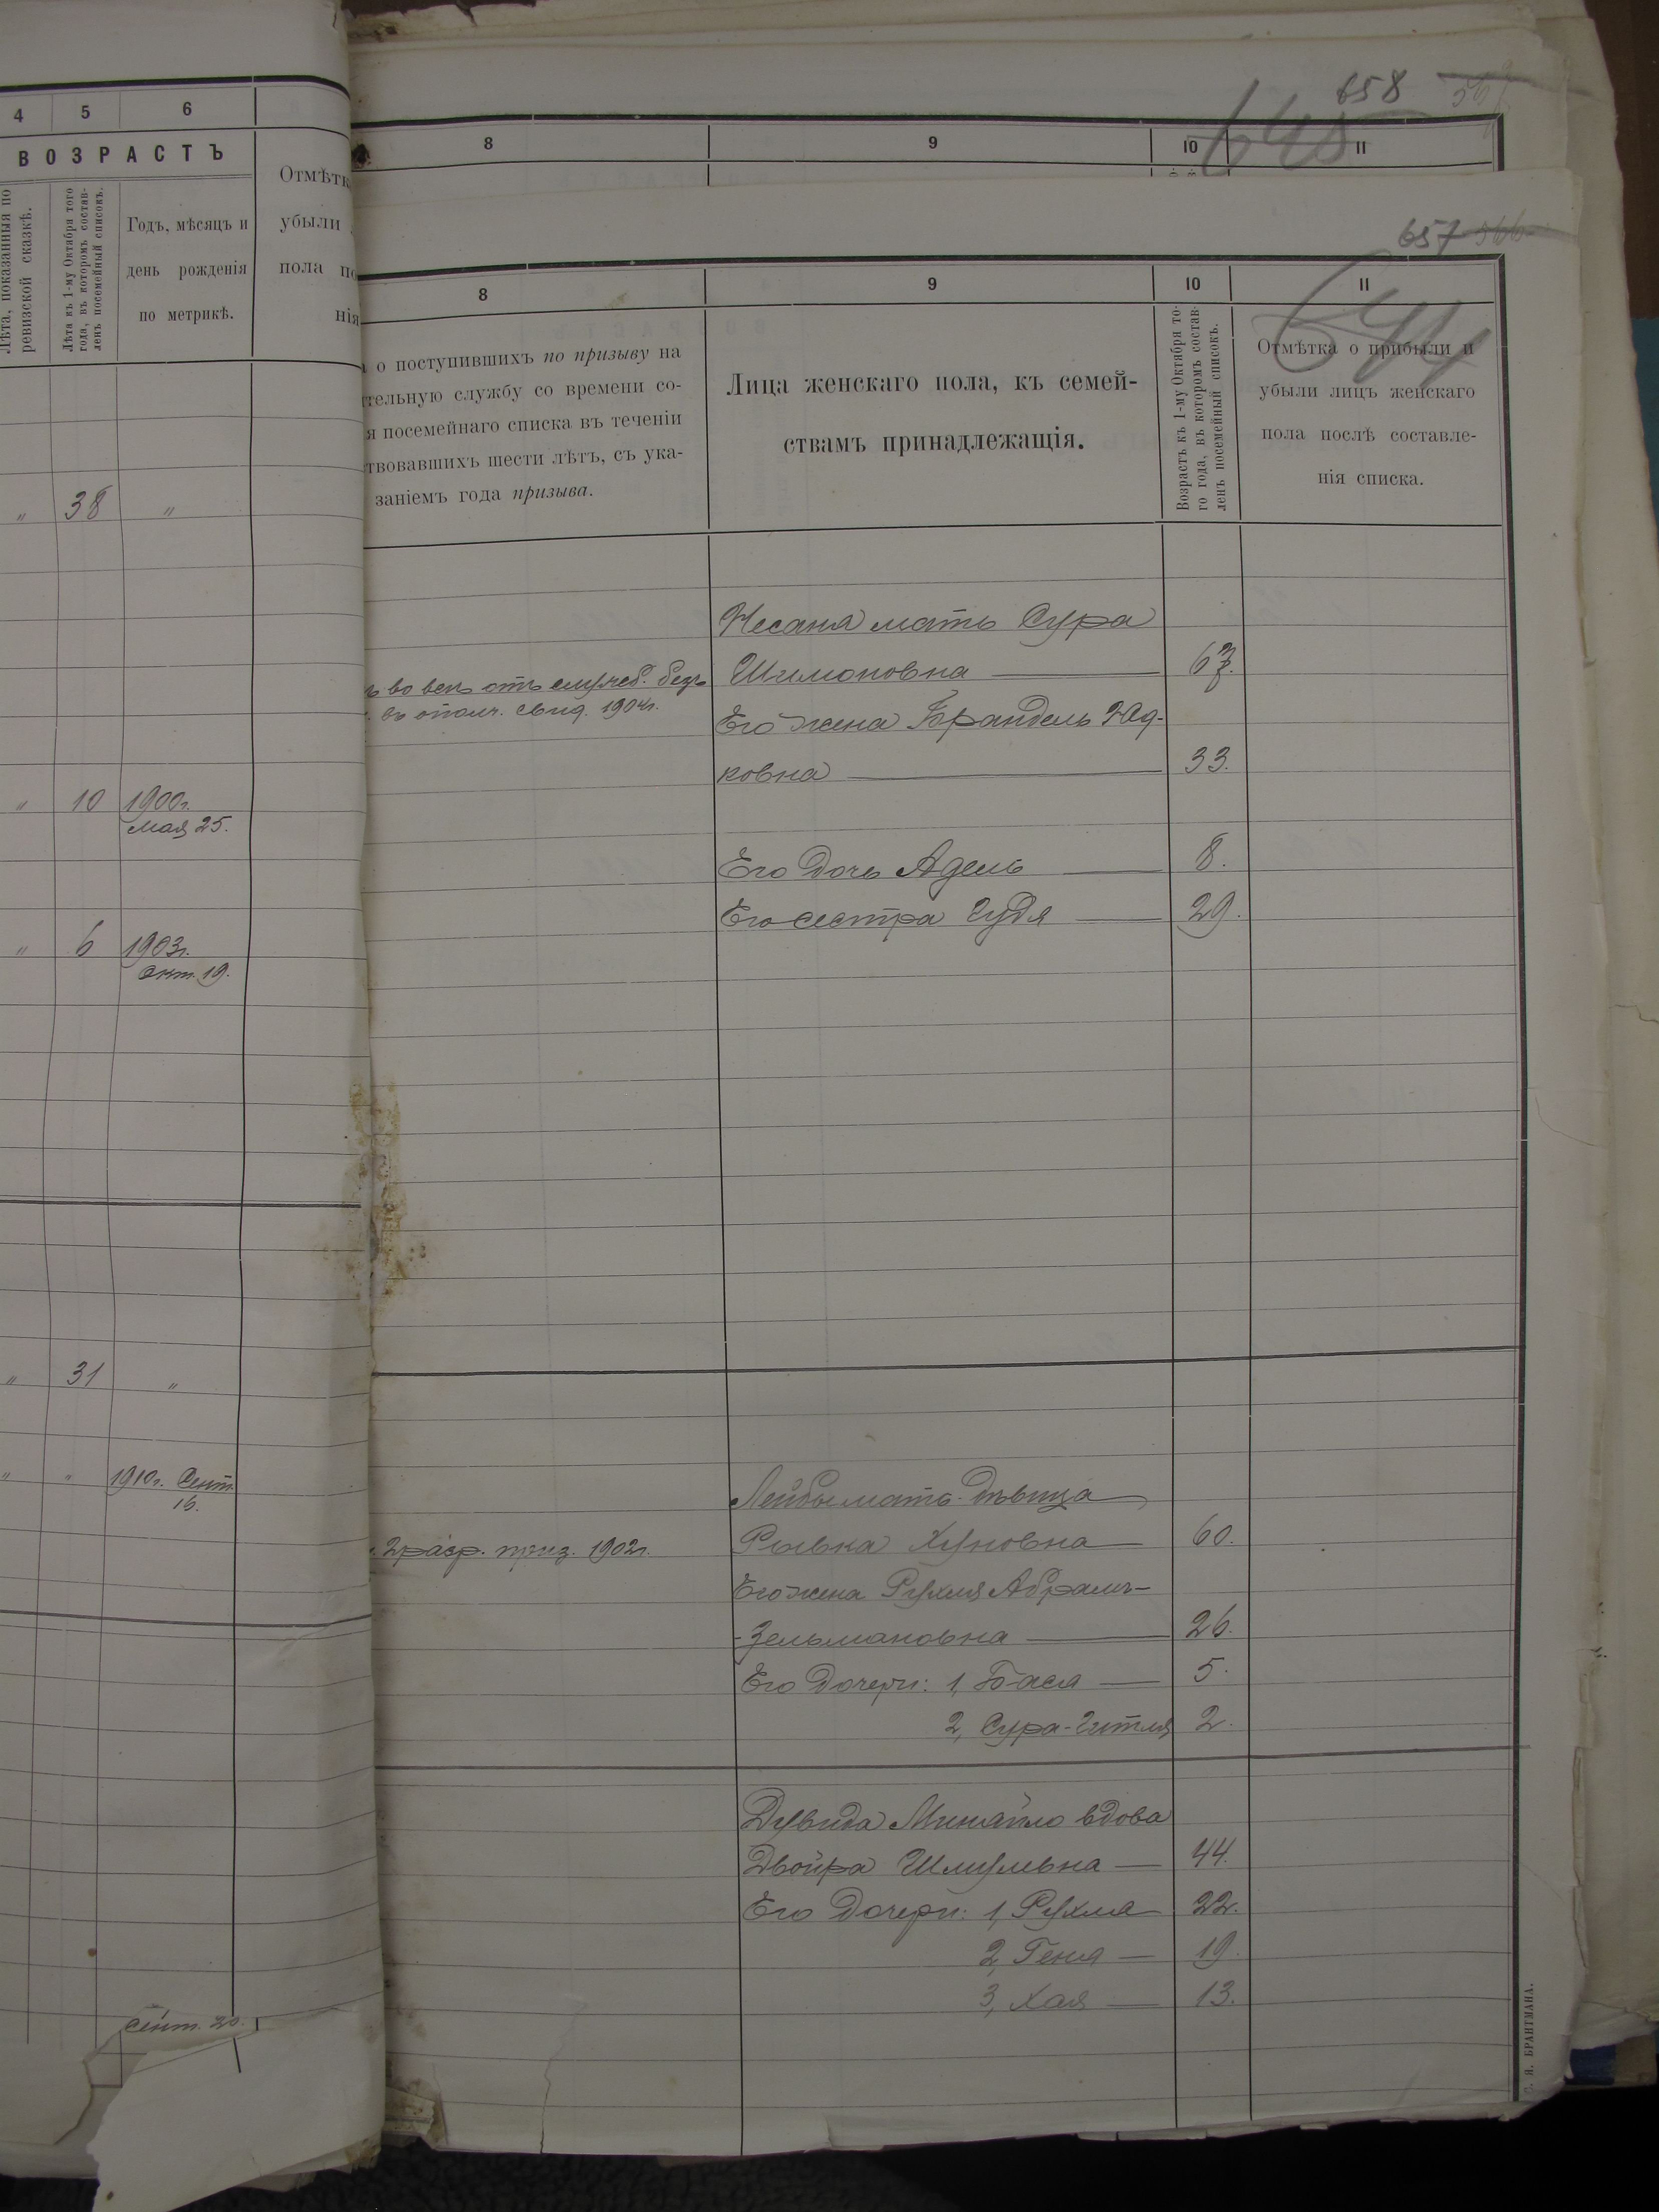 4 5 6
ВОЗРАСТЪ
Лѣта, показанныя по
ревизской сказкѣ.
Лѣта къ 1-му Октября того
года, въ которомъ состав-
ленъ посемейный списокъ.
Годъ, мѣсяцъ и
день рожденія
по метрикѣ.
Отмѣтк
убыли
пола по
нія
" 38 "
" 10 1900г.
Мая 25.
" 6 1903г.
Окт. 19.
" 31 "
" " 1910г. Сент.
16.
Сент. 20.
658
645
8 9 10 11
657 566
644
8 9 10 11
о поступившихъ по призыву на
тельную службу со времени со-
я посемейнаго списка въ теченіи
твовавшихъ шести лѣтъ, съ ука-
заніемъ года призыва.
Лица женскаго пола, къ семей-
ствамъ принадлежащія.
Возрастъ къ 1-му Октября то-
го года, въ которомъ состав-
ленъ посемейный списокъ.
Отмѣтка о прибыли и
убыли лицъ женскаго
пола послѣ составле-
нія списка.
во все отъ служб. безъ
въ ополч. свид. 1904г.
2 разр. приз. 1902г.
Несаня мать Сура
Шимоновна 67.
Его жена Брандель
ковна 33.
Его дочь Адель 8.
Его сестра Гудя 29.
Лейбы мать дѣвица
Рывка Хуновна 60.
Его жена Рухля Абрамъ-
-Зельмановна 26.
Его дочери: 1, Бася 5.
2, Сура-Гитля 2.
Дувида Михайло вдова
Двойра Шмульвна 44.
Его дочери: 1, Рухля 22.
2, Геня 19.
3, Хая 13.
С. Я. БРАНТМАНА.